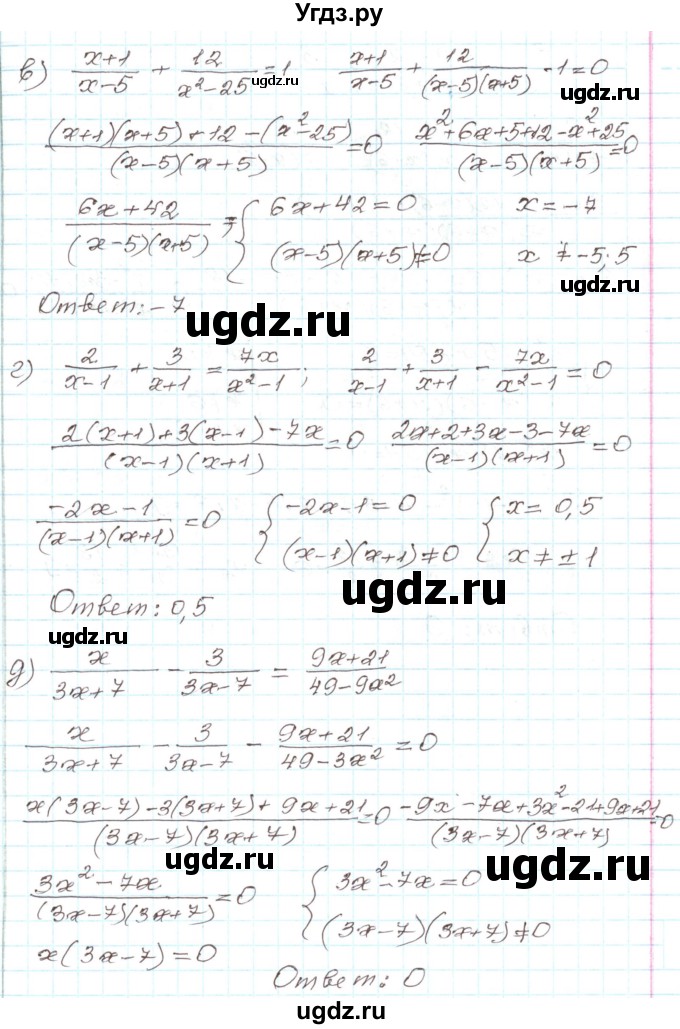 Угдз.ру
в) (x+1)/(x-5) + 12/(x²-25) = 1   (x+1)/(x-5) + 12/((x-5)(x+5)) - 1 = 0
ugdz.ru
ugdz.ru
((x+1)(x+5)+12-(x²-25))/((x-5)(x+5)) = 0   (x²+6x+5+12-x²+25)/((x-5)(x+5)) = 0
(6x+42)/((x-5)(x+5)) = { 6x+42=0   x=-7
(x-5)(x+5)≠0   x ≠ -5; 5
Ответ: -7
ugdz.ru
ugdz.ru
г) 2/(x-1) + 3/(x+1) = 7x/(x²-1);   2/(x-1) + 3/(x+1) - 7x/(x²-1) = 0
(2(x+1)+3(x-1)-7x)/((x-1)(x+1)) = 0   (2x+2+3x-3-7x)/((x-1)(x+1)) = 0
(-2x-1)/((x-1)(x+1)) = 0   { -2x-1=0   { x=0,5
(x-1)(x+1)≠0   x≠±1
ugdz.ru
Ответ: 0,5
ugdz.ru
д) x/(3x+7) - 3/(3x-7) = (9x+21)/(49-9x²)
x/(3x+7) - 3/(3x-7) - (9x+21)/(49-3x²) = 0
(x(3x-7)-3(3x+7)+9x+21)/((3x-7)(3x+7)) = 0   (-9x-7x+3x²-21+9x+21)/((3x-7)(3x+7)) = 0
ugdz.ru
ugdz.ru
(3x²-7x)/((3x-7)(3x+7)) = 0   { 3x²-7x=0
(3x-7)(3x+7)≠0
x(3x-7)=0
Ответ: 0
ugdz.ru